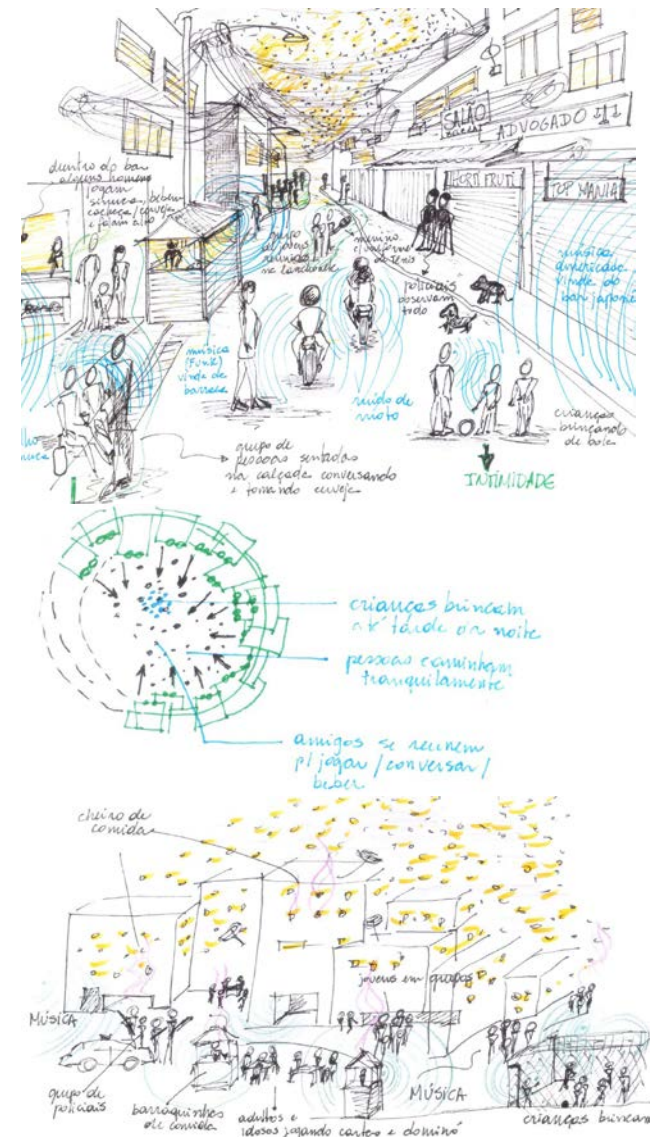 SALÃO
ADVOGADO
HORTI FRUTI
TOP MANIA
dentro do bar
alguns homens
jogam
sinuca, bebem
cachaça/cerveja
e falam alto
grupo
de jovens
reunidos
na lanchonete
menino
c/ uniforme
de tênis
policiais
observam
tudo
música
vinda do
bar
música
(Funk)
vinda da
barraca
ruído de
moto
crianças
brincando
de bola
INTIMIDADE
grupo de
pessoas sentadas
na calçada conversando
e tomando cerveja
crianças brincam
até tarde da noite
pessoas caminham
tranquilamente
amigos se reunem
p/ jogar / conversar /
beber
cheiro de
comida
jovens em grupos
MÚSICA
MÚSICA
grupo de
policiais
barraquinhas
de comida
adultos e
idosos jogando cartas e dominó
crianças brincam